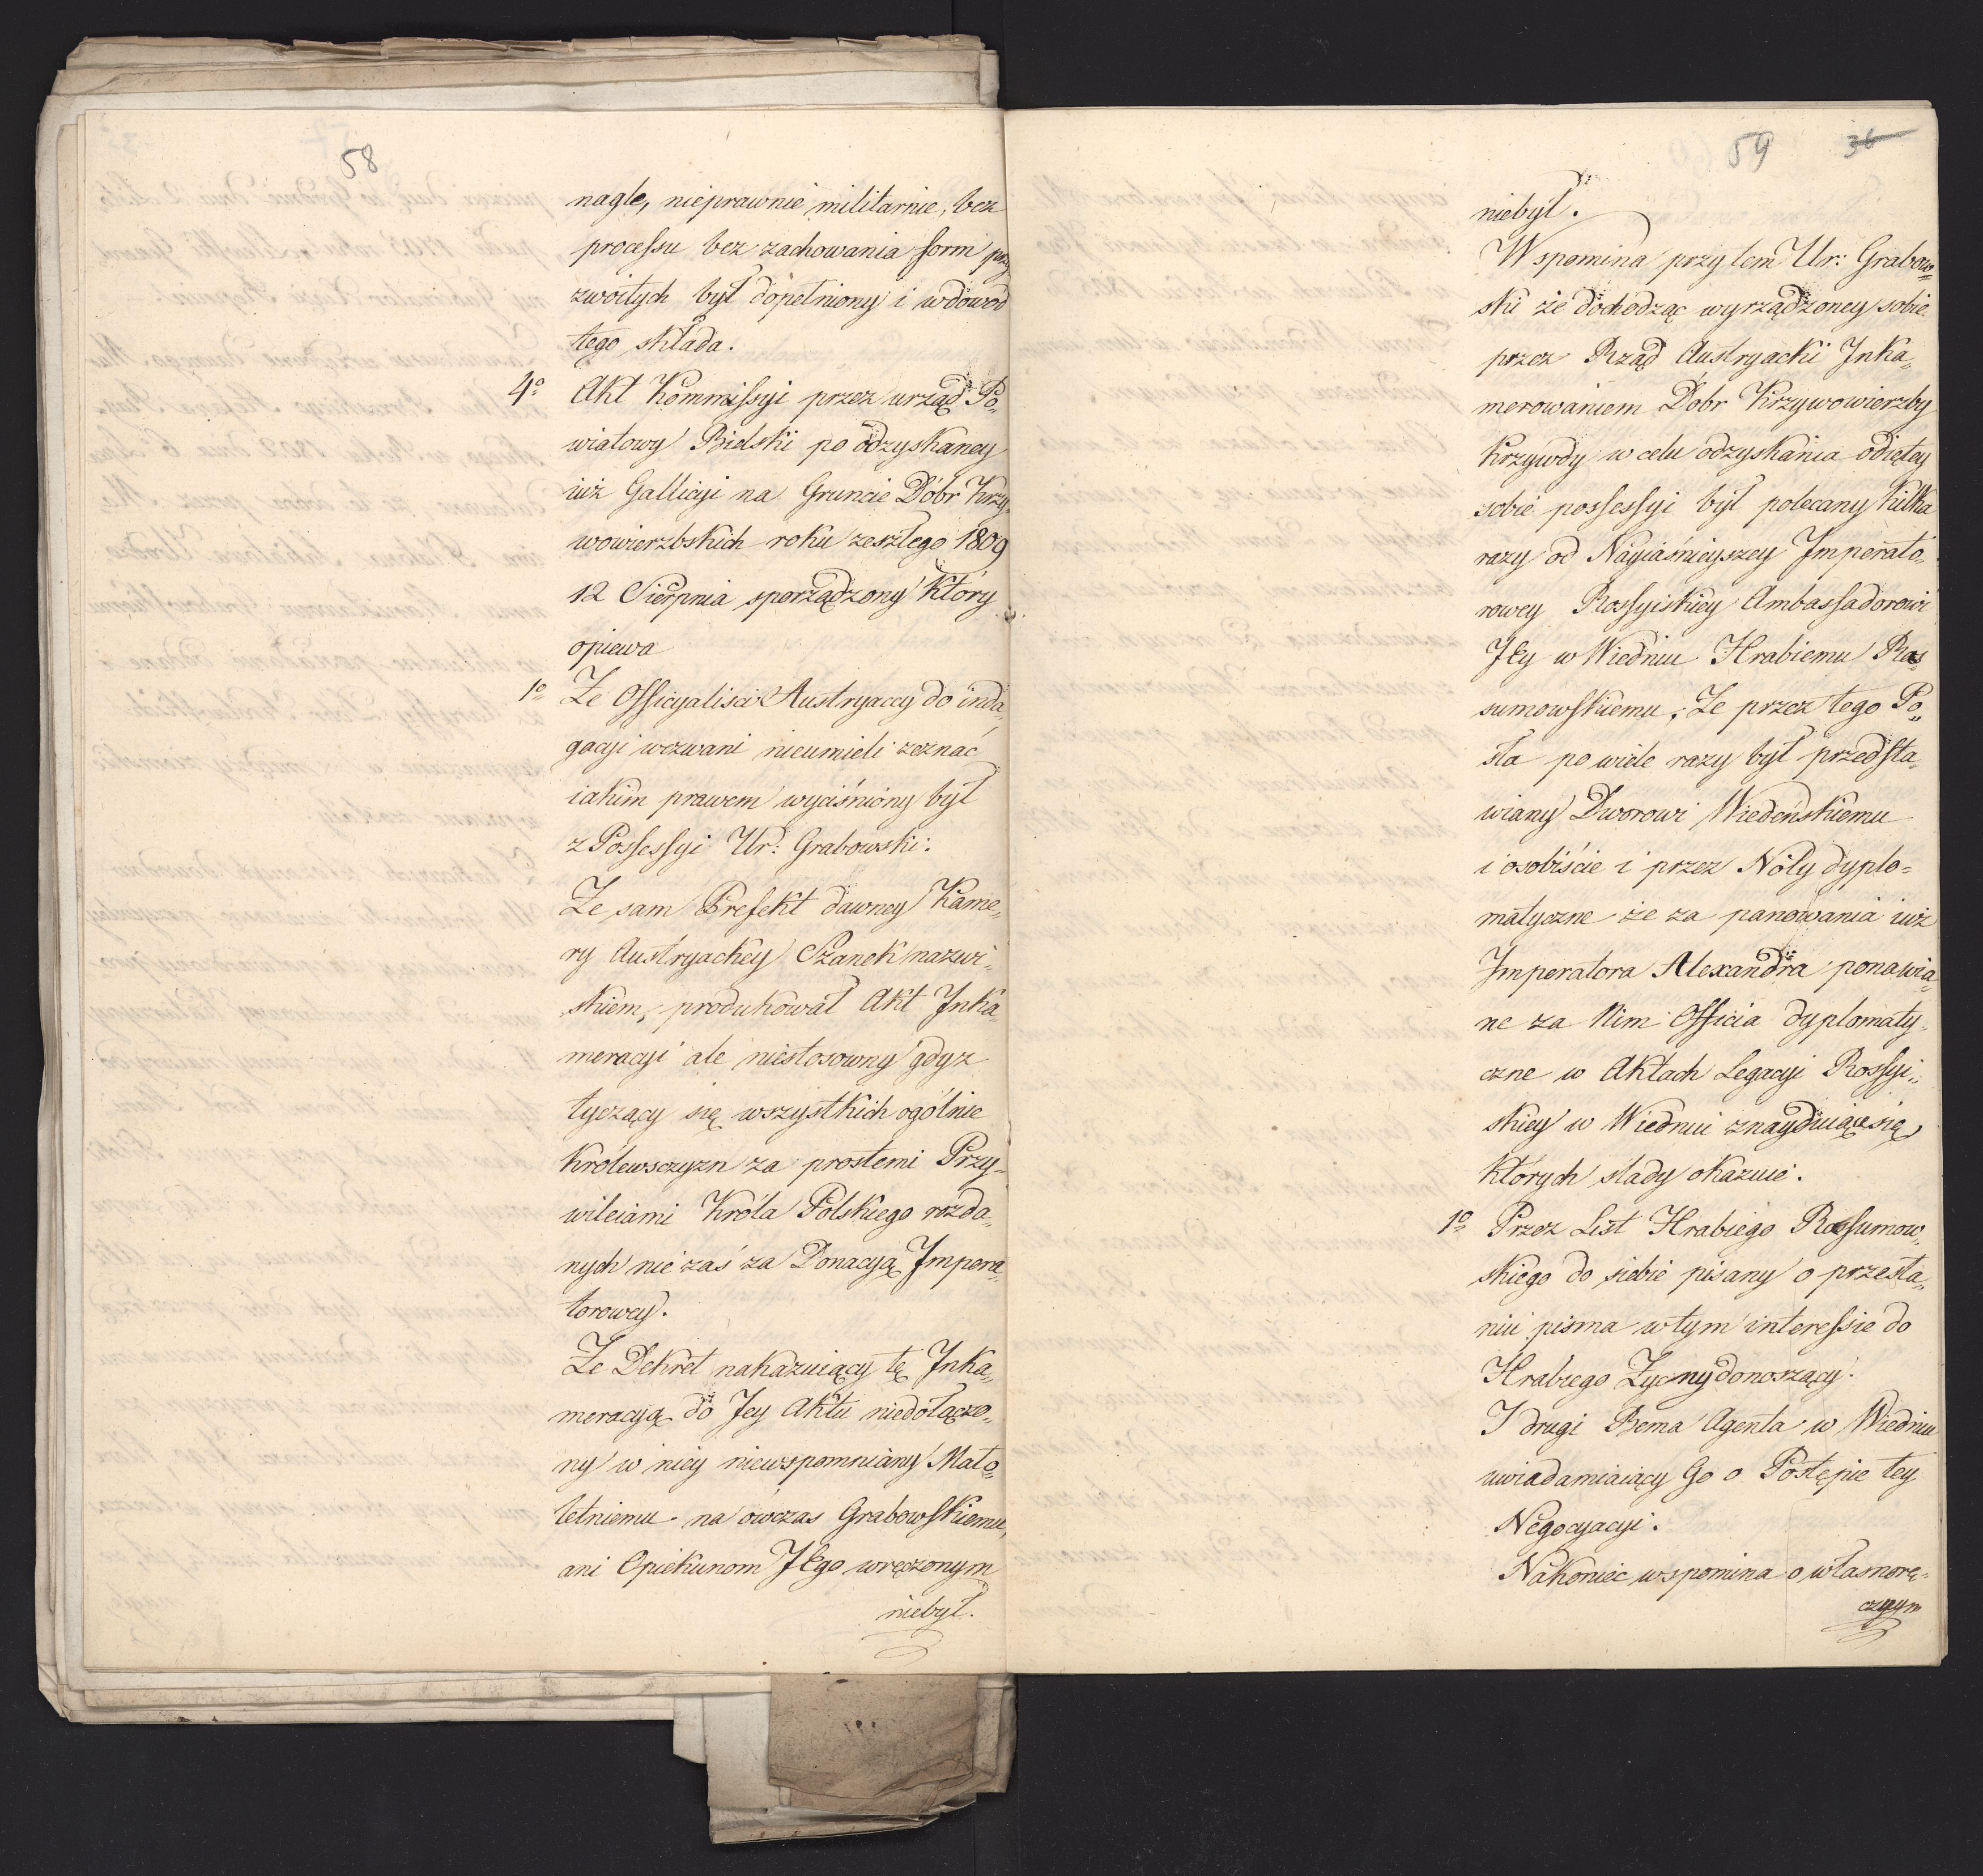 58
nagle, nieprawnie militarnie, bez
processu bez zachowania form przy
zwoitych był dopełniony i w dowod
tego składa.
4º Akt Kommissyi przez urząd Po„
wiatowy Bielski po odzyskaney
iuż Gallicyi na Gruncie Dóbr Krzy„
wowierzbskich roku zeszłego 1809
12 Sierpnia sporządzony który
opiewa
1º Że Officyaliści Austryaccy do inda„
gacyi wezwani nieumieli zeznać
iakim prawem wyciśniony był
z Possessyi Ur: Grabowski.
Że sam Prefekt dawney Kame„
ry Austryackey Szanek nazwi„
skiem, produkował Akt Inka„
meracyi ale niestosowny gdyż
tyczący się wszystkich ogólnie
Królewsczyzn za prostemi Przy„
wileiami Króla Polskiego rozda„
nych nie zaś za Donacyą Impera„
torowey.
Że Dekret nakazuiący tę Inka„
meracyą do Jey Aktu niedołączo„
ny w niey niewspomniany Mało„
letniemu na ówczas Grabowskiemu,
ani Opiekunom JEgo wręczonym
niebył.
59 36
niebył.
Wspomina przytem Ur: Grabow„
ski że dochodząc wyrządzoney sobie
przez Rząd Austryacki Inka„
merowaniem Dobr Krzywowierzby
Krzywdy w celu odzyskania odiętey
sobie possessyi był polecany kilka
razy od Nayiaśnieyszey Imperato„
rowey Rossyiskiey Ambassadorowi
JEy w Wiedniu Hrabiemu Ras
sumowskiemu, Że przez tego Po„
sła po wiele razy był przedsta„
wiany Dworowi Wiedeńskiemu
i osobiście i przez Noty dyplo=
matyczne że za panowania iuż
Imperatora Alexandra ponawia„
ne za Nim Officia dyplomaty„
czne w Aktach Legacyi Rossyi„
skiey w Wiedniu znayduiące się,
których ślady okazuie.
1º Przez List Hrabiego Rassumow„
skiego do siebie pisany o przesła„
niu pisma w tym interessie do
Hrabiego Zycny donoszący.
I drugi Bema Agenta w Wiedniu
uwiadamiaiący Go o Postępie tey
Negocyacyi.
Nakoniec wspomina o własnorę„
cznym